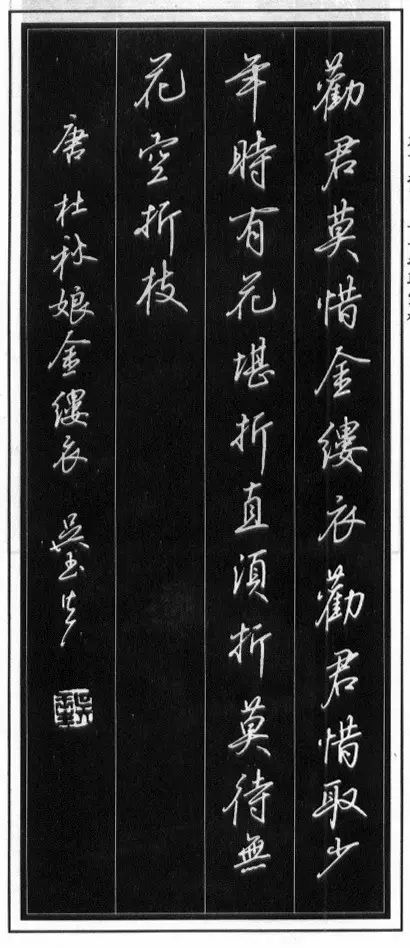 勸君莫惜金縷衣勸君惜取少
年時有花堪折直須折莫待無
花空折枝
唐杜秋娘金縷衣 吳玉生